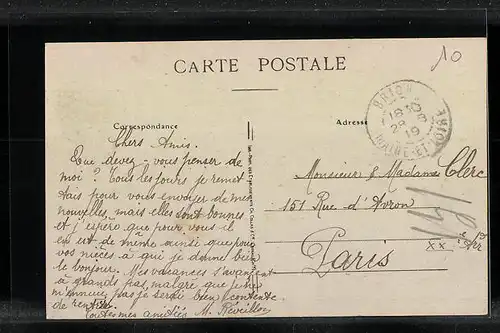 10
CARTE POSTALE
Correspondance
Adresse
BRION
18 30
28 8
19
MAINE-ET-LOIRE
Chers Amis.
Que devez-vous penser de
moi? Tous les jours je remet
tais pour vous envoyer de mes
nouvelles, mais elles sont bonnes
et j'espère que pour vous il
en est de même ainsi que pour
vos nièces à qui je donne bien
le bonjour. Mes vacances s'avancent
à grands pas, malgré que je ne
m'ennuie pas je serai bien contente
de rentrer.
Toutes mes amitiés M. Reveillon
Monsieur & Madame Clerc
151 Rue d'Avron
Paris
XX